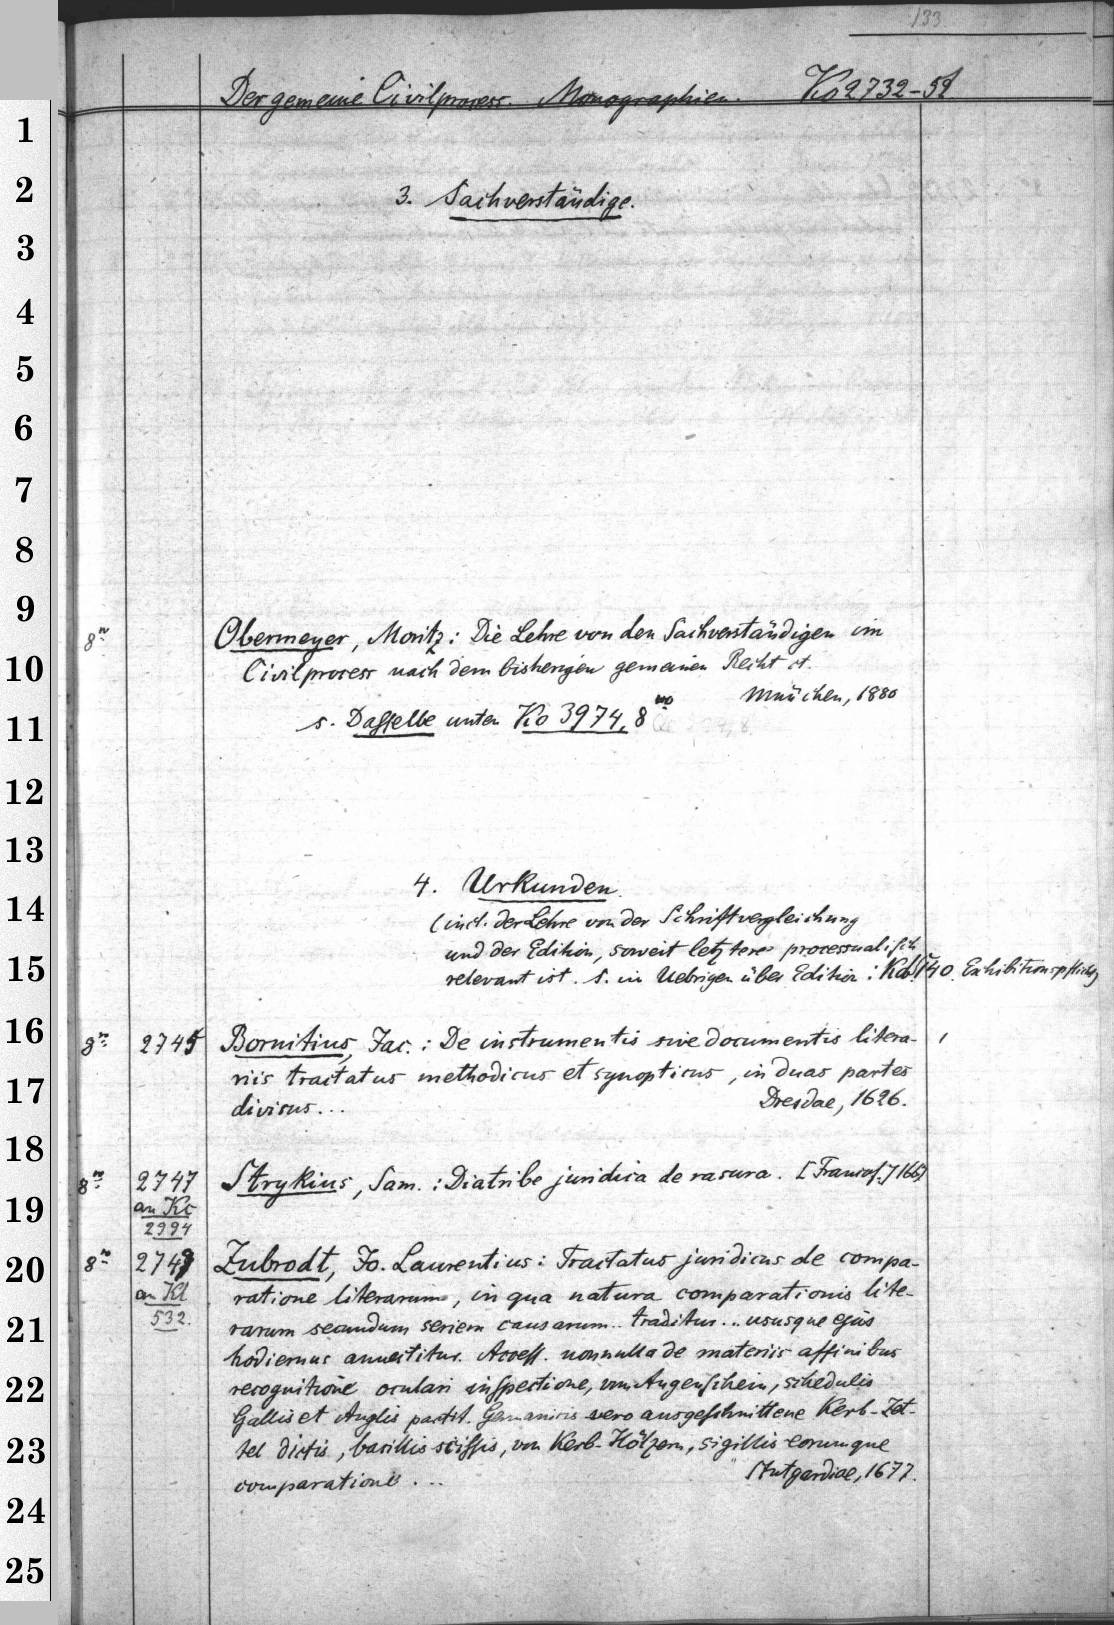 133
Der gemeine Civilprocess. Monographien. Ko 2732-52
1
2
3. Sachverständige.
3
4
5
6
7
8
9
8º Obermeyer, Moritz: Die Lehre von den Sachverständigen im
10 Civilprocess nach dem bisherigen gemeinen Recht et.
München, 1880
11 s. Dasselbe unter Ko 3974, 8vo
12
13
4. Urkunden
14 (incl. der Lehre von der Schriftvergleichung
und der Edition, soweit letztere processualisch
15 relevant ist. S. im Uebrigen über Edition: Exhibitionspflicht)
16 8º 2745 Bornitius, Jac.: De instrumentis sive documentis litera-
17 riis tractatus methodicus et synopticus, in duas partes
divisus... Dresdae, 1626.
18
8º 2747 Strykius, Sam.: Diatribe juridica de rasura. [Francof.]
19 an Kc
2994
20 8º 2749 Zubrodt, Jo. Laurentius: Tractatus juridicus de compa-
an Kl ratione literarum, in qua natura comparationis lite-
21 532. rarum secundum seriem causarum.. traditur... ususque ejus
hodiernus annectitur. Access. nonnulla de materiis affinibus
22 recognitione oculari inspectione, vom Augenschein, schedulis
Gallis et Anglis partit. Germanicis vero ausgeschnittene Kerb-Zet-
23 tel dictis, bacillis scissis, von Kerb-Hölzern, sigillis eorumque
comparatione ... Stutgardiae, 1677.
24
25